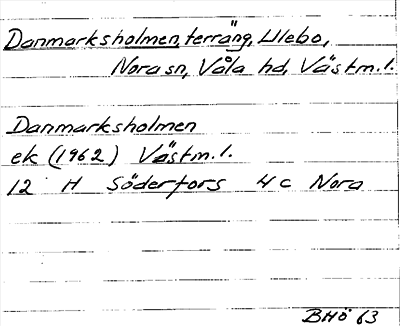 Danmarksholmen, terräng, Ulebo,
Nora sn, Våla hd, Västm. l.
Danmarksholmen
ek (1962) Västm. l.
12 H Söderfors 4 c Nora
BHö 63